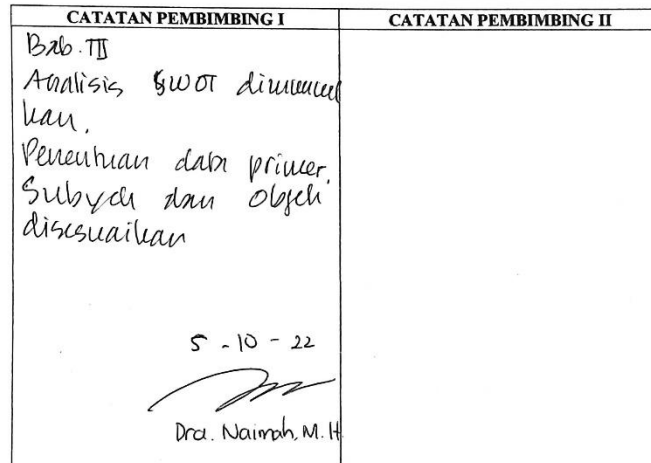 CATATAN PEMBIMBING I
CATATAN PEMBIMBING II
Bab. III
Analisis SWOT dimuncul
kan.
Penentuan data primer.
Subyek dan Objek
disesuaikan
5 - 10 - 22
Dra. Naimah, M.H